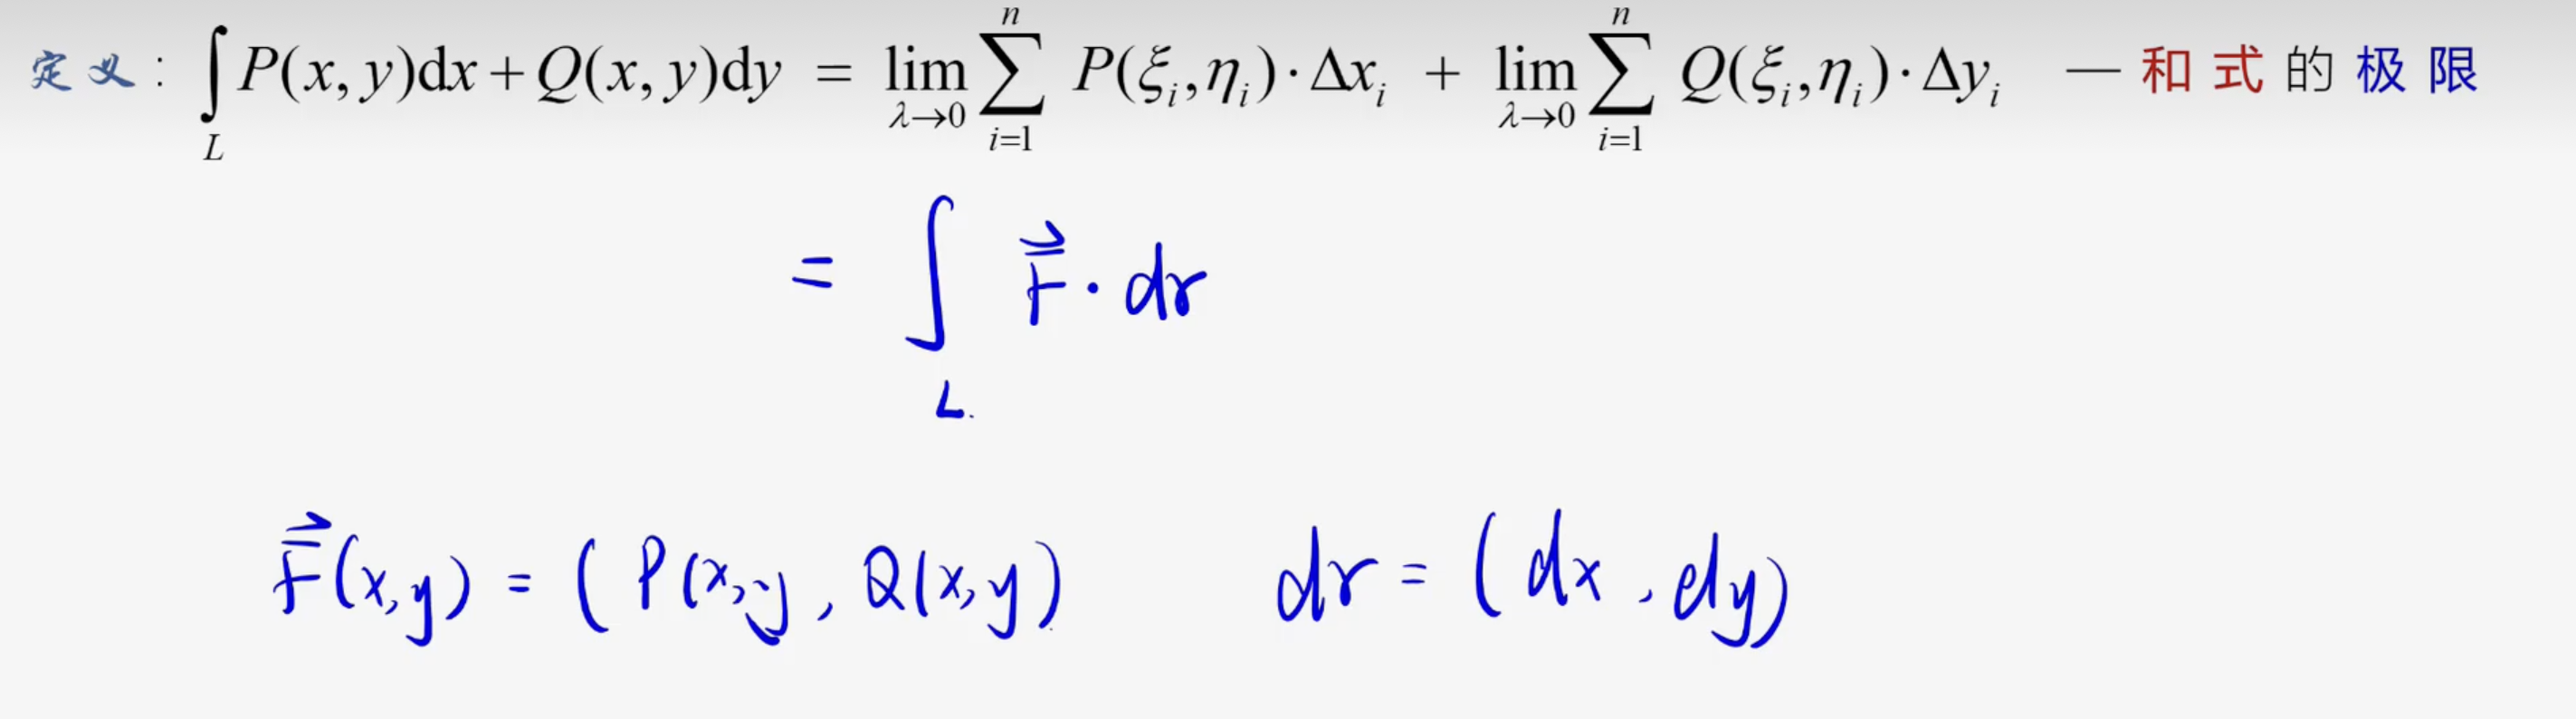 定义: ∫_L P(x, y)dx + Q(x, y)dy = lim_{λ→0} ∑_{i=1}^{n} P(ξ_i, η_i)·Δx_i + lim_{λ→0} ∑_{i=1}^{n} Q(ξ_i, η_i)·Δy_i — 和式的极限
= ∫_L F⃗ · dr
F⃗(x,y) = ( P(x,y , Q(x,y) ) dr = ( dx , dy)